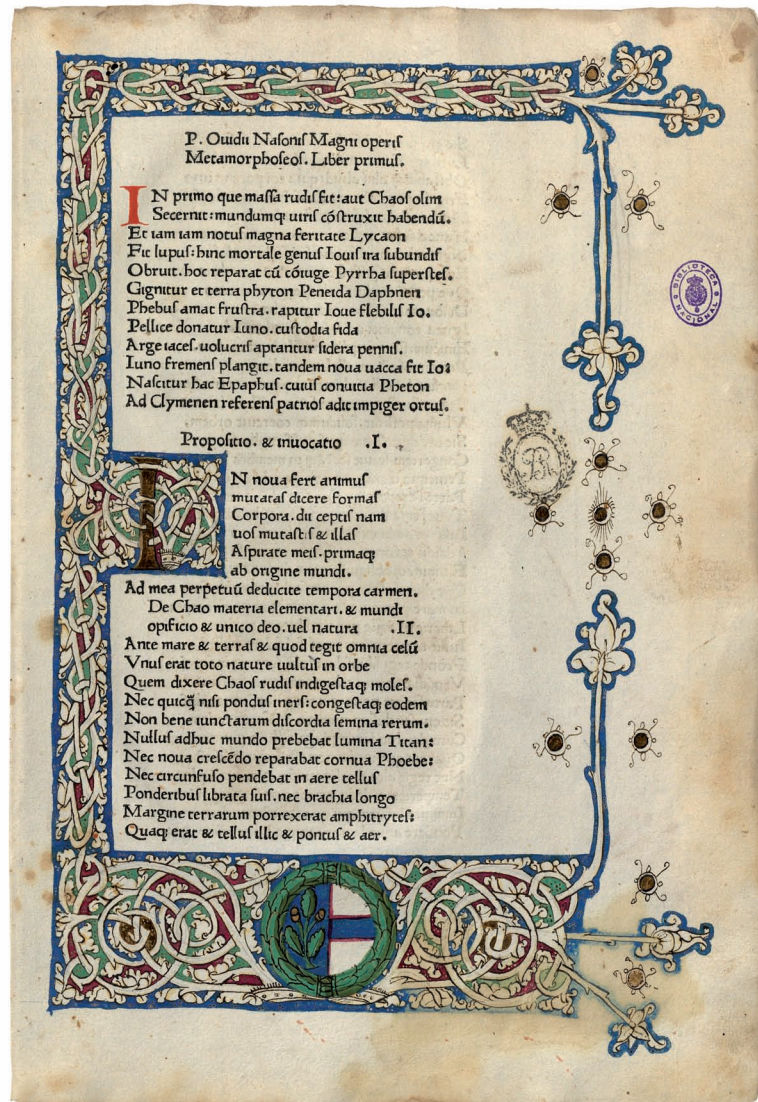 P. Ouidii Nasonis Magni operis
Metamorphoseos. Liber primus.
IN primo que massa rudis fit: aut Chaos olim
Secernit: mundumq; uiris cōstruxit habendū.
Et iam iam notus magna feritate Lycaon
Fit lupus: hinc mortale genus Iouis ira subundis
Obruit. hoc reparat cū cōiuge Pyrrha superstes.
Gignitur et terra phyton Peneida Daphnen
Phebus amat frustra. rapitur Ioue flebilis Io.
Pellice donatur Iuno. custodia fida
Arge iaces. uolucris aptantur sidera pennis.
Iuno fremens plangit. tandem noua uacca fit Io:
Nascitur hac Epaphus. cuius conuitia Pheton
Ad Clymenen referens patrios adit impiger ortus.
Propositio. & inuocatio .I.
IN noua fert animus
mutatas dicere formas
Corpora. dii ceptis nam
uos mutastis & illas
Aspirate meis. primaq;
ab origine mundi.
Ad mea perpetuū deducite tempora carmen.
De Chao materia elementari. & mundi
opificio & unico deo. uel natura .II.
Ante mare & terras & quod tegit omnia celū
Vnus erat toto nature uultus in orbe
Quem dixere Chaos rudis indigestaq; moles.
Nec quicq̄ nisi pondus iners: congestaq; eodem
Non bene iunctarum discordia semina rerum.
Nullus adhuc mundo prebebat lumina Titan:
Nec noua crescēdo reparabat cornua Phoebe:
Nec circunfuso pendebat in aere tellus
Ponderibus librata suis. nec brachia longo
Margine terrarum porrexerat amphitrytes:
Quaq; erat & tellus illic & pontus & aer.
BIBLIOTECA NACIONAL